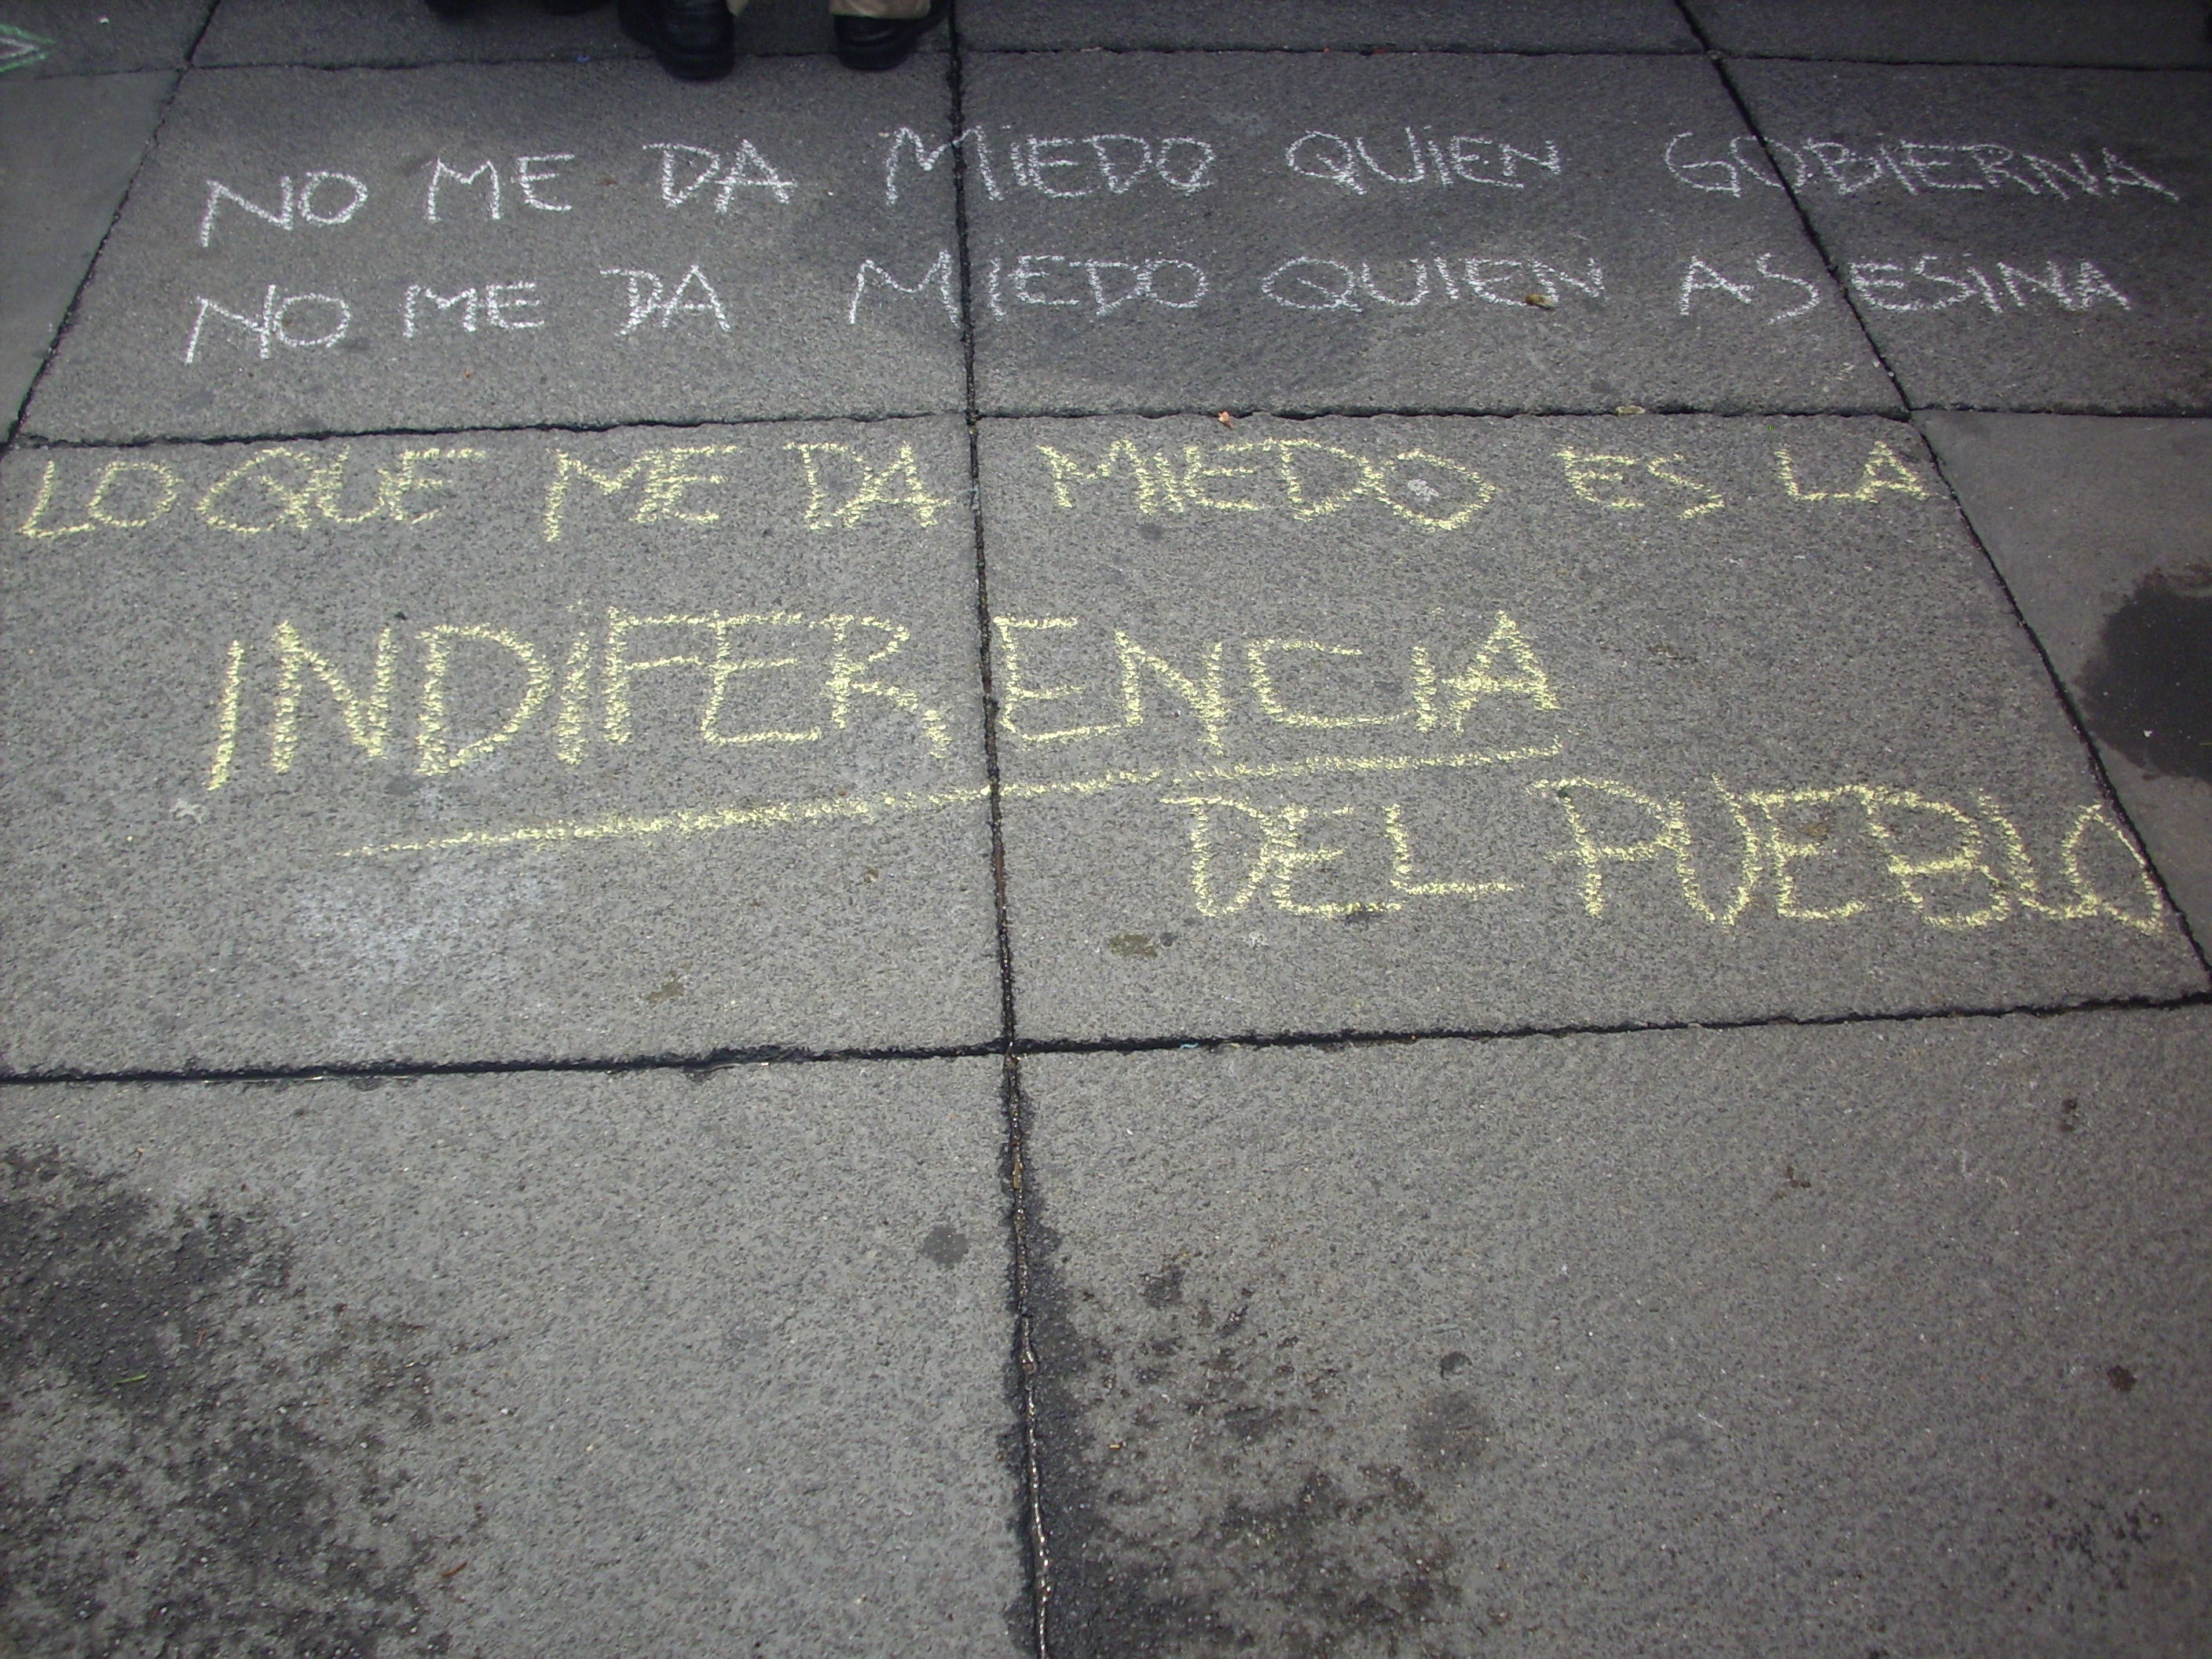 NO ME DA MIEDO QUIEN GOBIERNA
NO ME DA MIEDO QUIEN ASESINA
LO QUE ME DA MIEDO ES LA
INDIFERENCIA
DEL PUEBLO